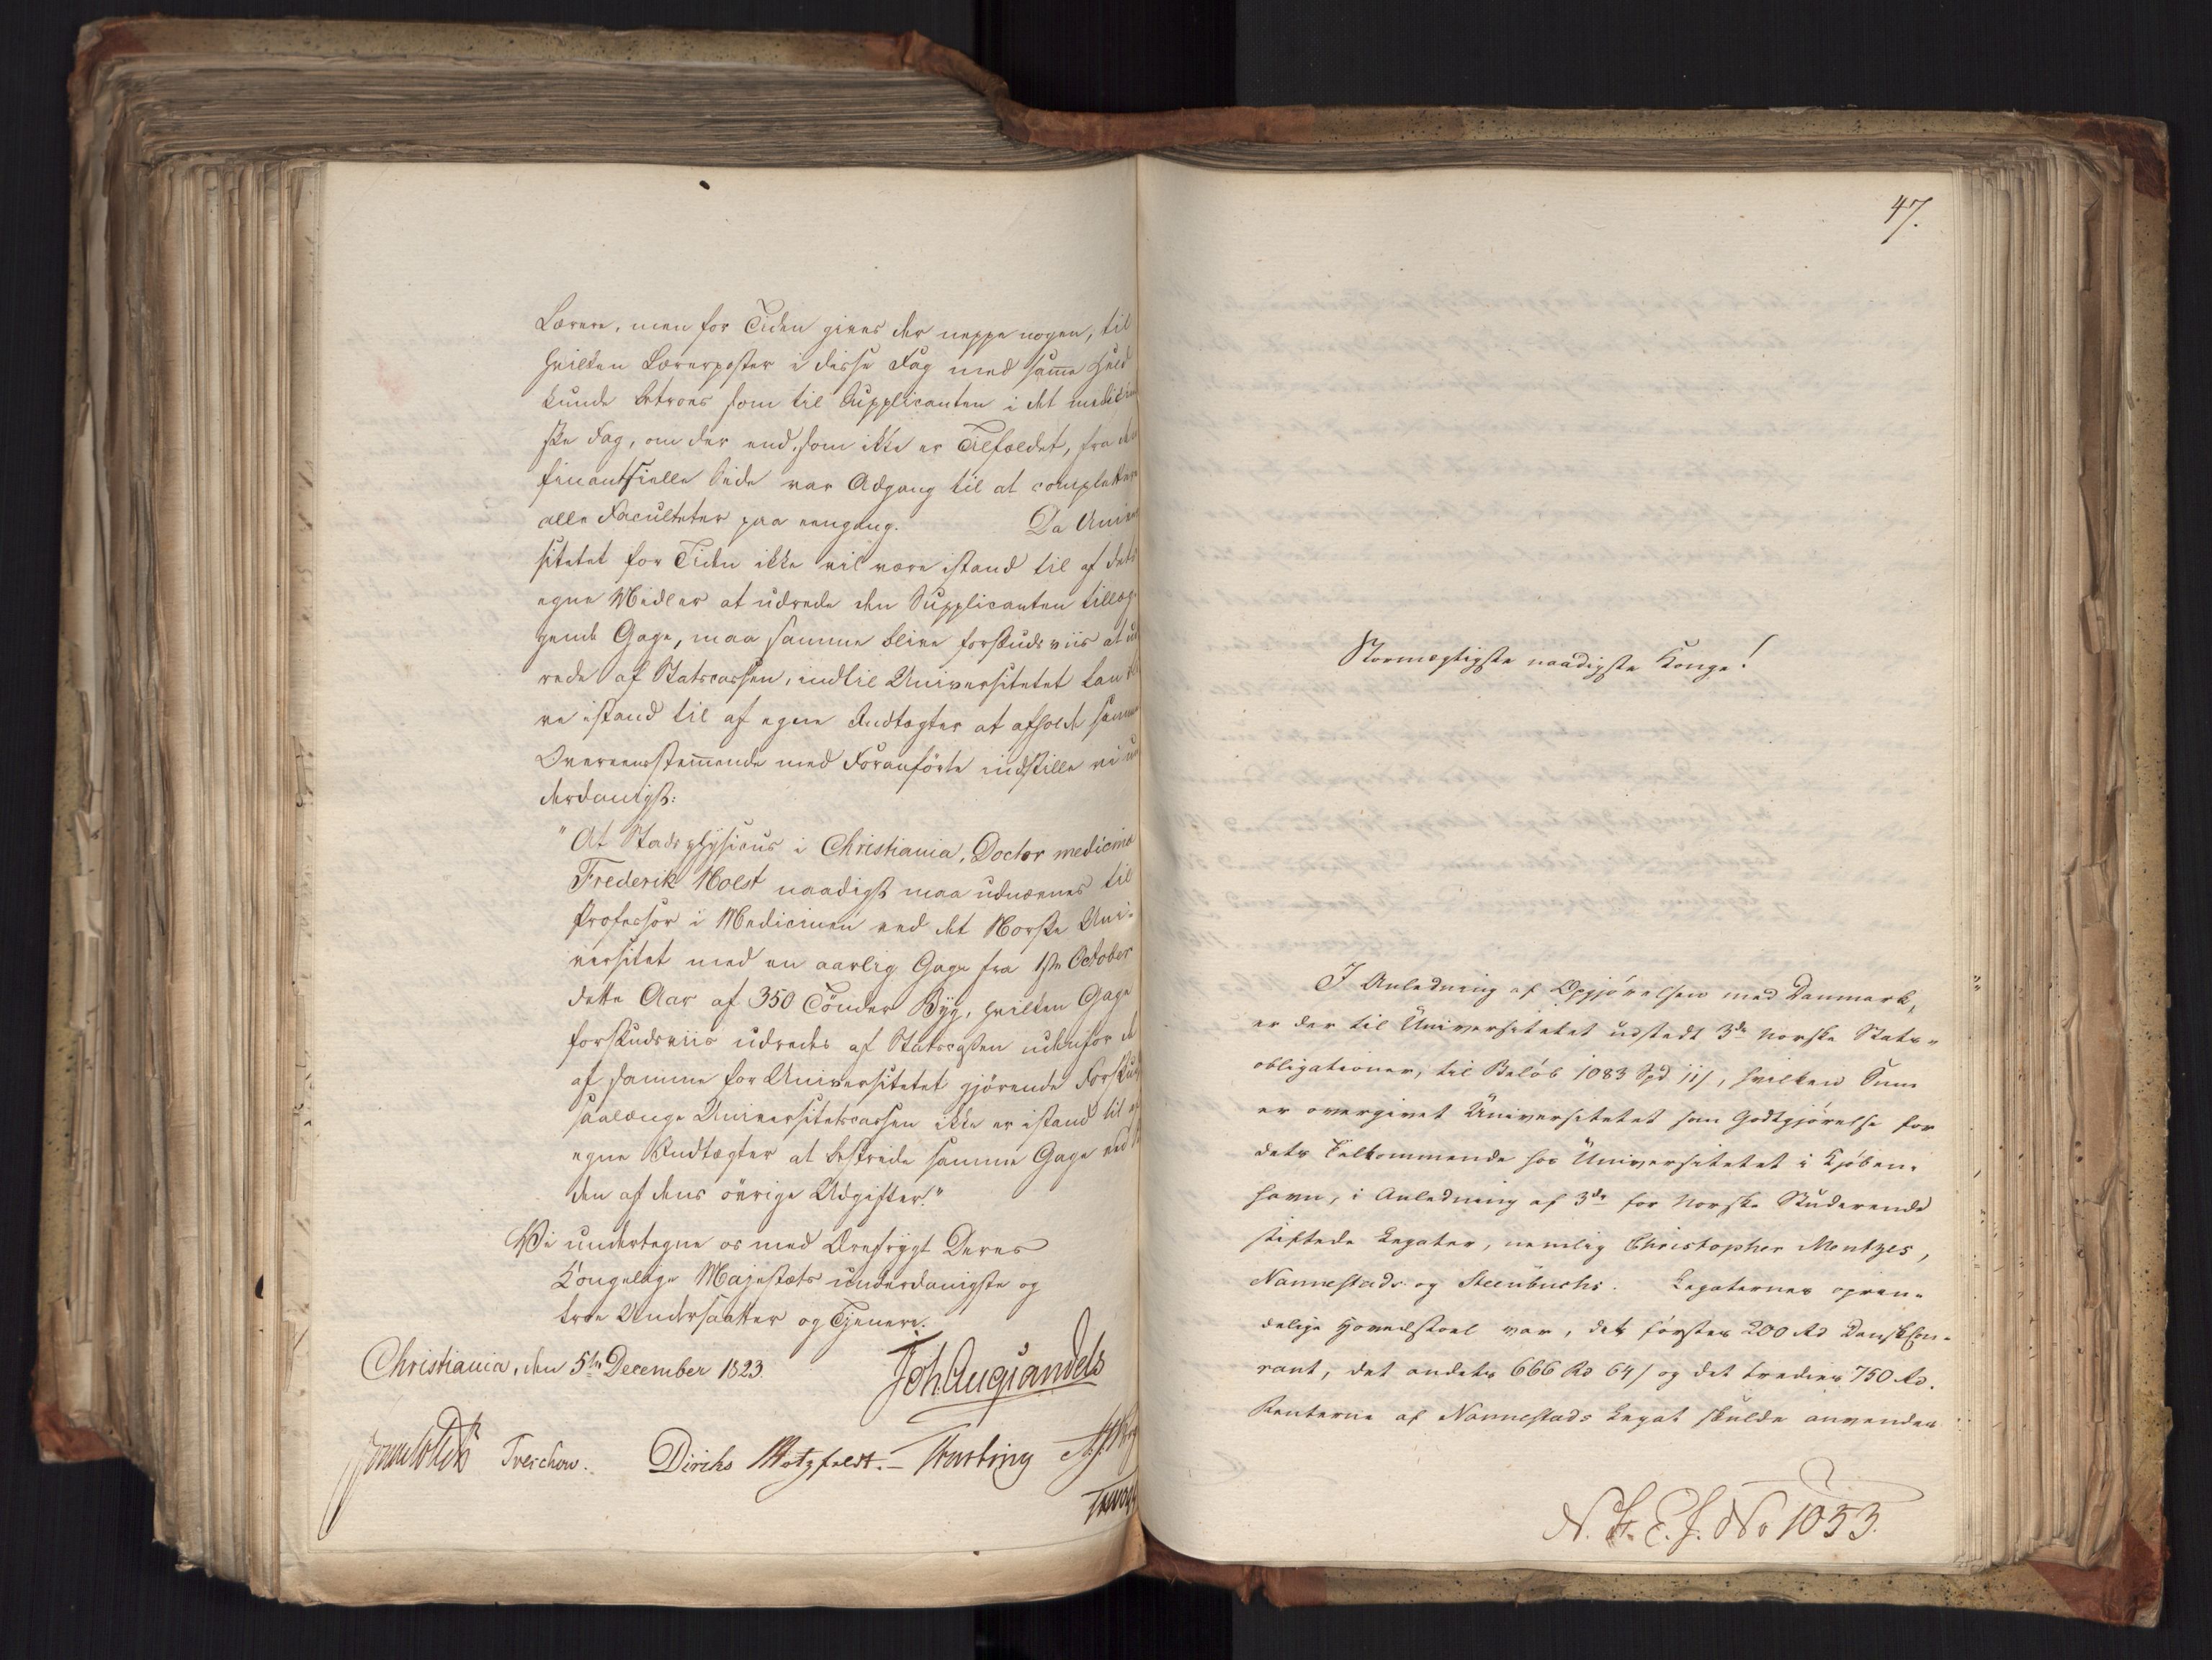 Lærere, men for Tiden gives der neppe nogen, til
hvilken Lærerposter i disse Fag med samme Held
kunde betroes som til Supplicanten i det medicin
ske Fag, om der end, som ikke er Tilfældet, fra den
finantsielle Side var Adgang til at complettere
alle Faculteter paa eengang. Da Univer
sitetet for Tiden ikke vil være istand til af dets
egne Midler at udrede den Supplicanten tillæg-
gende Gage, maa samme blive forskudsviis at ud
rede af Statscassen, indtil Universitetet kan bli
ve istand til af egne Indtægter at afholde samme
Overeensstemmende med Foranførte indstille vi un
derdanigst:
"At Stadsphysicus i Christiania, Doctor medicinæ
Frederik Holst naadigst maa udnævnes til
Professor i Medicinen ved det Norske Uni-
versitet med en aarlig Gage fra 1ste October
dette Aar af 350 Tønder Byg, hvilken Gage
forskudsviis udredes af Statscassen udenfor de
af samme for Universitetet gjørende Forskud
saalænge Universitetscassen ikke er istand til af
egne Indtægter at bestride samme Gage ved
den af dens øvrige Udgifter."
Vi undertegne os med Ærefrygt Deres
Kongelige Majestæts underdanigste og
troe Undersaatter og Tjenere.
Christiania, den 5te December 1823.
Joh. Aug. Sandels
Sommerhielm Treschow. Diriks Motzfeldt. Fasting
47.
Stormægtigste naadigste Konge!
I Anledning af Opgjørelsen med Danmark,
er der til Universitetet udstedt 3de Norske Stats-
obligationer, til Beløb 1083 Spd 11 s, hvilken Sum
er overgivet Universitetet som Godtgjørelse for
dets Tilkommende hos Universitetet i Kjøben-
havn, i Anledning af 3de for Norske Studerende
stiftede Legater, nemlig Christopher Mentzes,
Nannestads og Steenbuchs. Legaternes oprin-
delige Hovedstoel var, det førstes 200 Rd Dansk Cou-
rant, det andets 666 Rd 64 s og det tredies 750 Rd.
Renterne af Nannestads Legat skulde anvendes
N. St. E. J. No 1053.